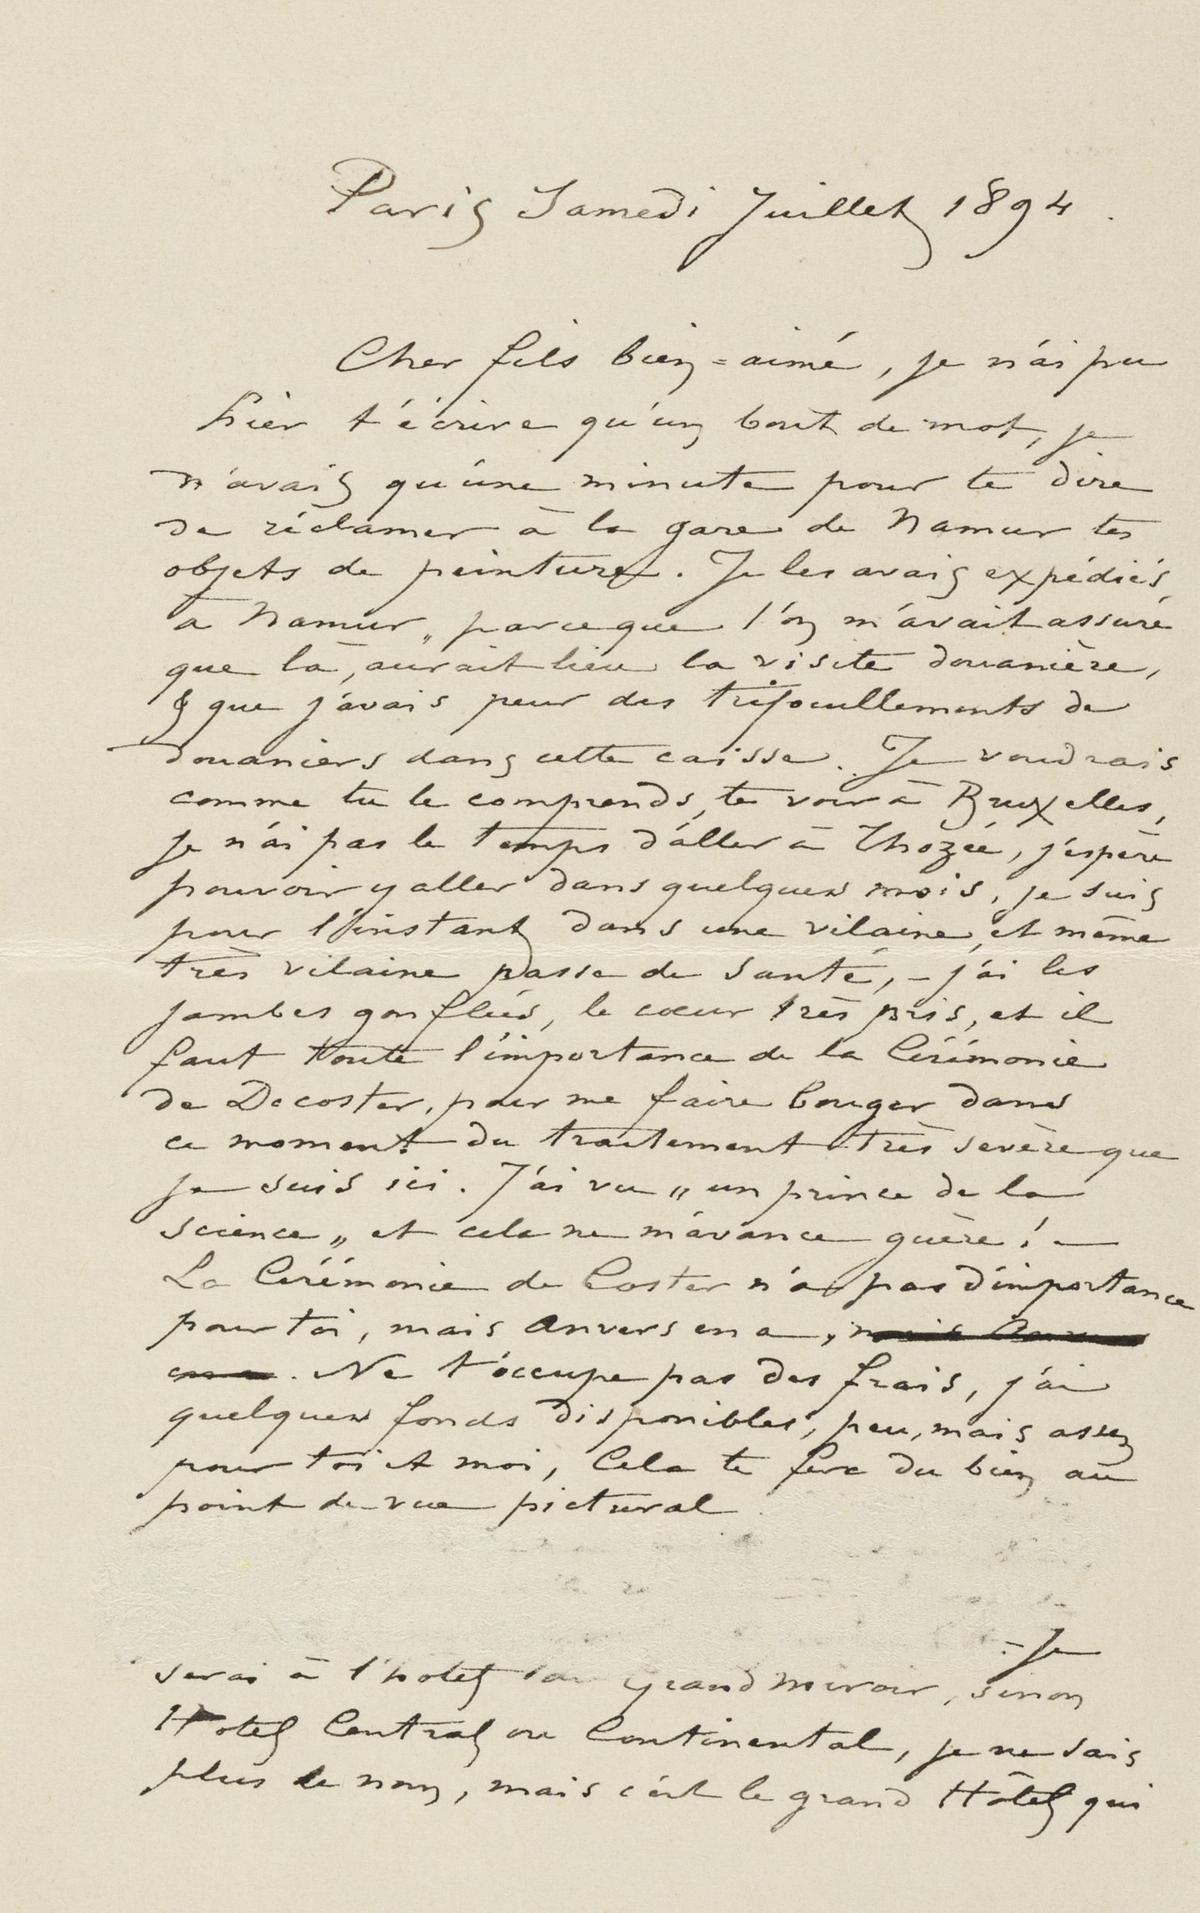 Paris Samedi Juillet 1894.
Cher fils bien-aimé, je n'ai pu
hier t'écrire qu'un bout de mot, je
n'avais qu'une minute pour te dire
de réclamer à la gare de Namur tes
objets de peinture. Je les avais expédiés
à Namur, parceque l'on m'avait assuré
que là, aurait lieu la visite douanière,
& que j'avais peur des trifouillements de
douaniers dans cette caisse. Je voudrais
comme tu le comprends, te voir à Bruxelles,
je n'ai pas le temps d'aller à Thozée, j'espère
pouvoir y aller dans quelques mois, je suis
pour l'instant dans une vilaine, et même
très vilaine passe de santé, – j'ai les
jambes gonflées, le cœur très pris, et il
faut toute l'importance de la Cérémonie
de Decoster, pour me faire bouger dans
ce moment du traitement très sevère que
je suis ici. J'ai vu „un prince de la
science„ et cela ne m'avance guère! –
La Cérémonie de Coster n'a pas d'importance
pour toi, mais Anvers en a, mais Anvers
en a. Ne t'occupe pas des frais, j'ai
quelques fonds disponibles, peu, mais assez
pour toi et moi, Cela te fera du bien au
point de vue pictural.
– Je
serai à l'hotel du grand miroir, sinon
Hotel Central ou Continental, je ne sais
plus le nom, mais c'est le grand Hôtel qui